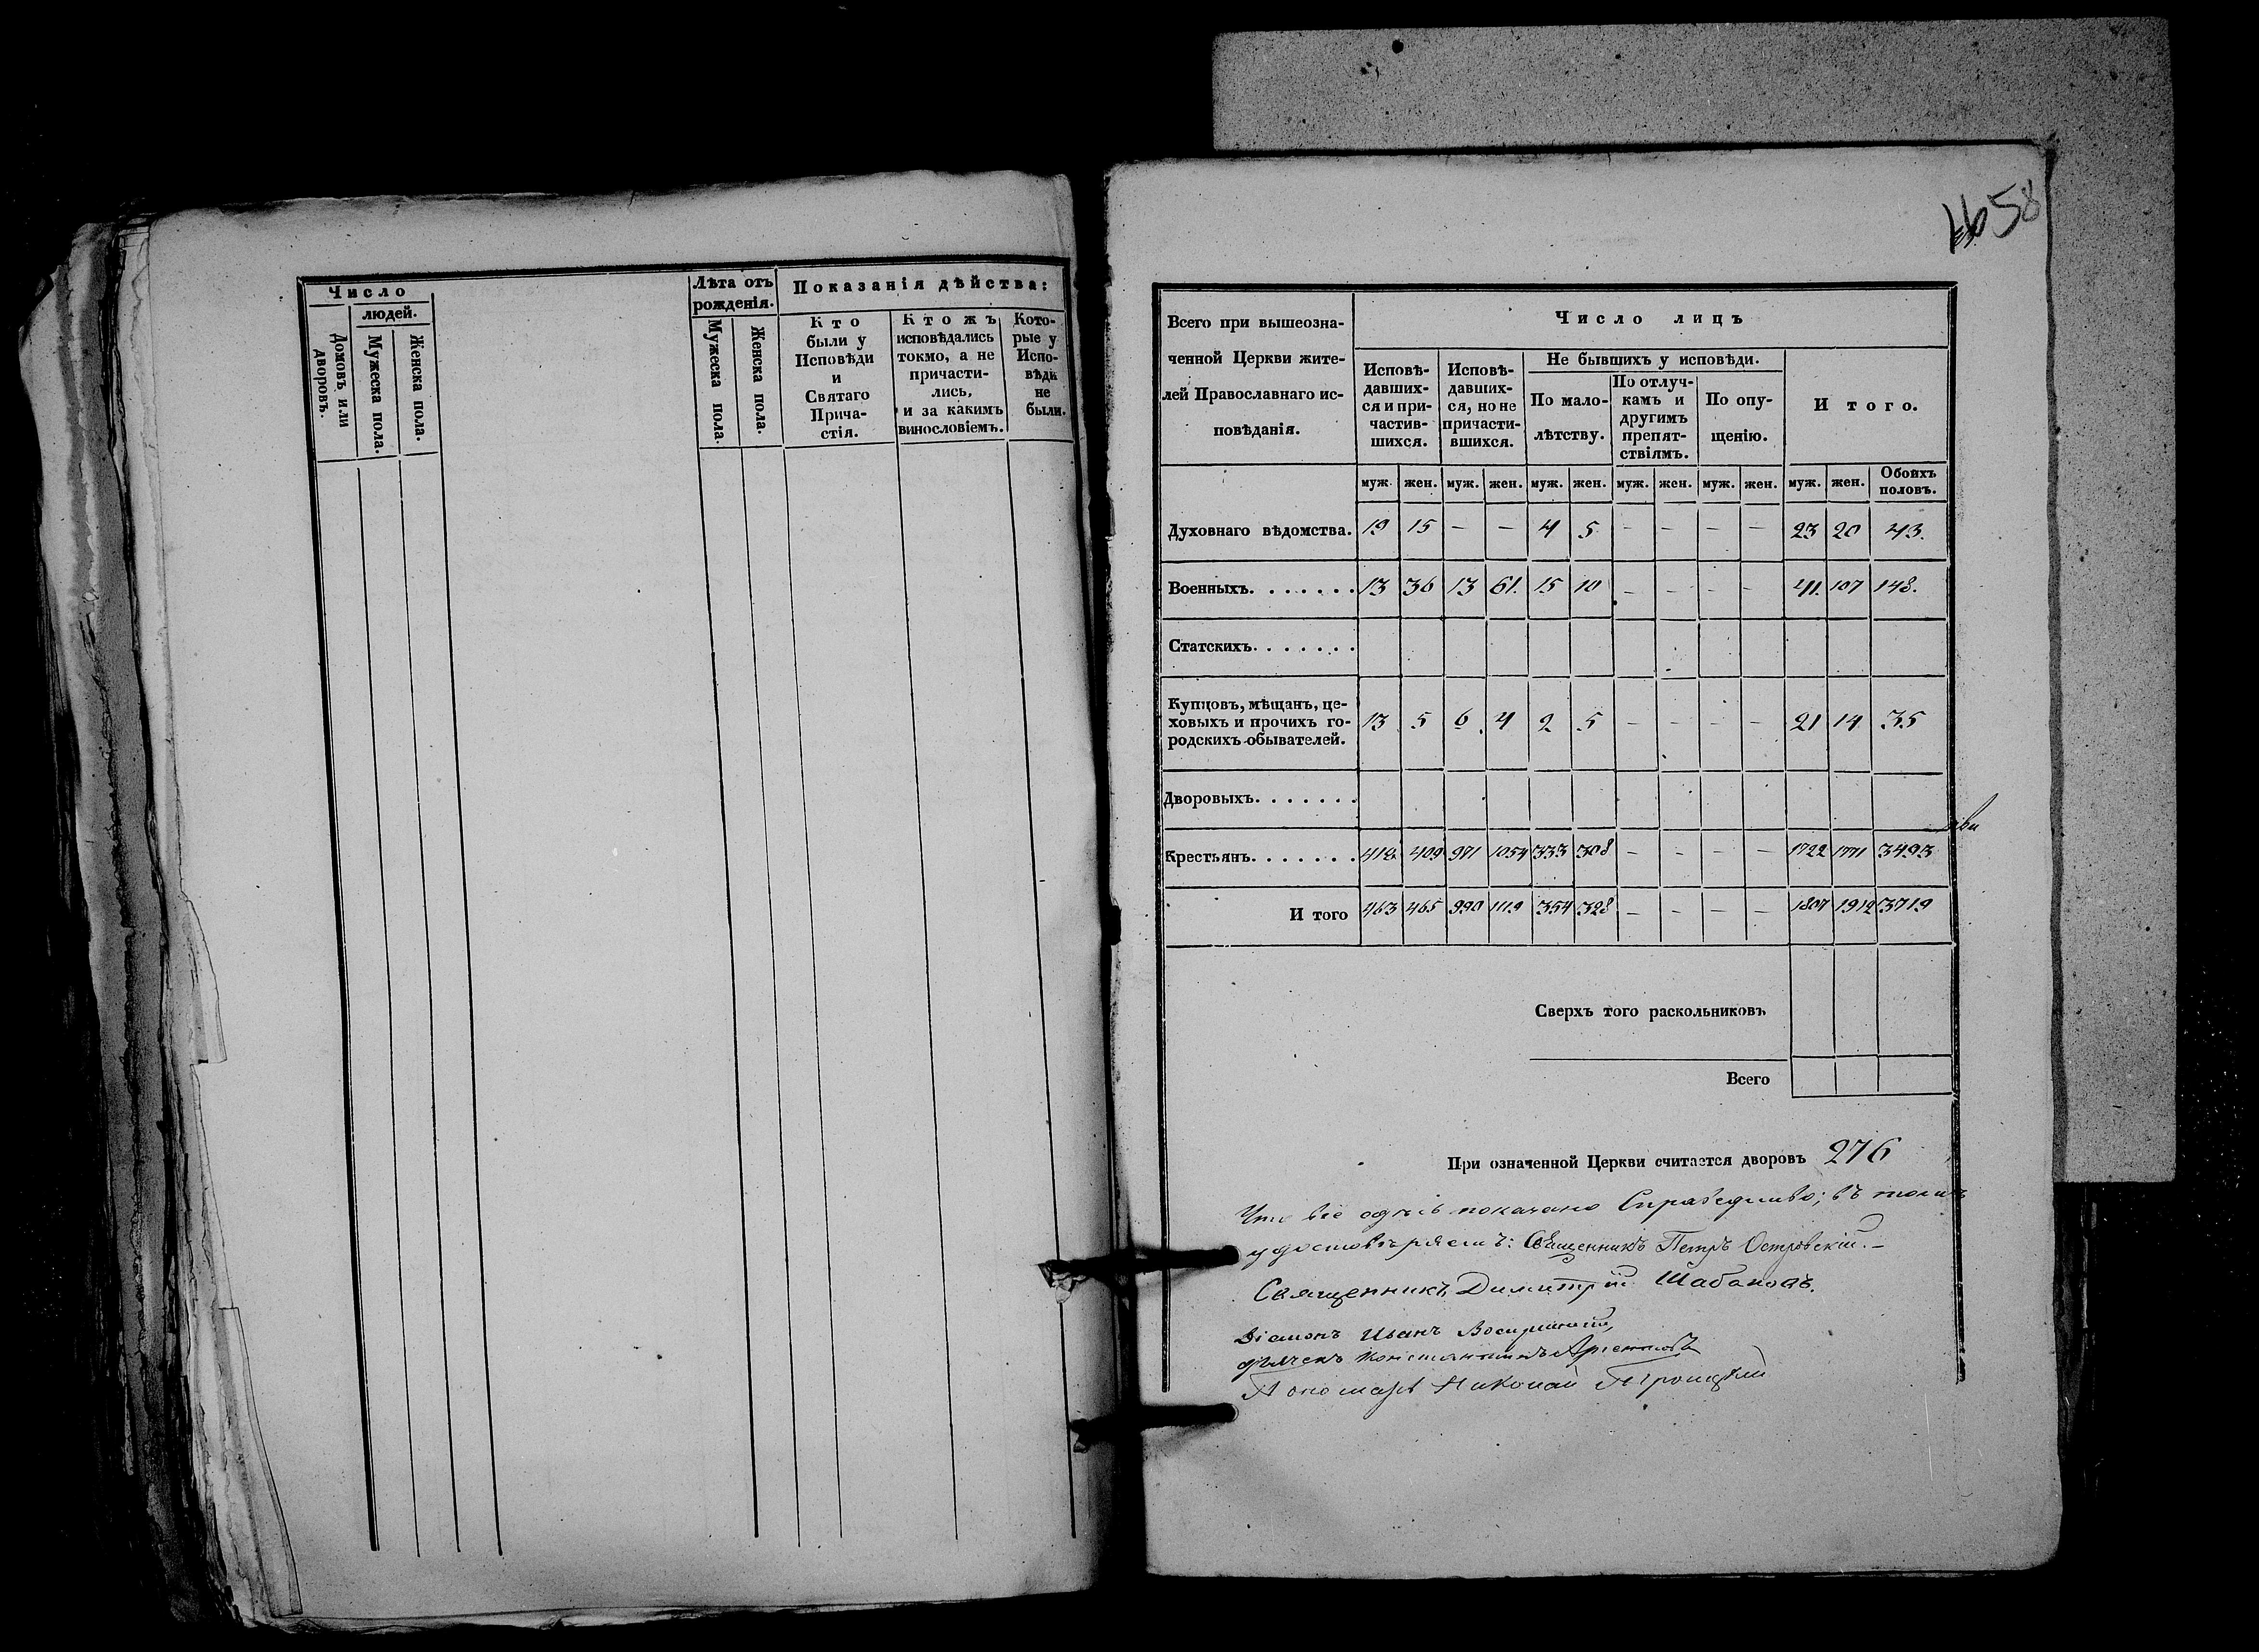 Число
людей.
Домовъ или
дворовъ.
Мужеска пола.
Женска пола.
Лѣта отъ
рожденія.
Мужеска пола.
Женска пола.
Показанія дѣйства:
Кто
были у
Исповѣди
и
Святаго
Прича-
стія.
Ктожъ
исповѣдались
токмо, а не
причасти-
лись,
и за какимъ
винословіемъ.
Кото-
рые у
Испо-
вѣди
не
были.
58
Всего при вышеозна-
ченной Церкви жите-
лей Православнаго ис-
повѣданія.
Число лицъ
Исповѣ-
давших-
ся и при-
частив-
шихся.
Исповѣ-
давших-
ся, но не
причасти-
вшихся.
Не бывшихъ у исповѣди.
По мало-
лѣтству.
По отлуч-
камъ и
другимъ
препят-
ствіямъ.
По опу-
щенію.
И того.
муж. жен. муж. жен. муж. жен. муж. жен. муж. жен. муж. жен. Обоихъ
половъ.
Духовнаго вѣдомства. 19 15 — — 4 5 — — — — 23 20 43.
Военныхъ. . . . . . . 13 36 13 61. 15 10 — — — — 41. 107 148.
Статскихъ. . . . . . .
Купцовъ, мѣщанъ, це-
ховыхъ и прочихъ го-
родскихъ обывателей.
13 5 6 4 2 5 — — — — 21 14 35
Дворовыхъ. . . . . . .
Крестьянъ. . . . . . . 418 409 971 1054 333 308 — — — — 1722 1771 3493
И того 463 465 990 1119 354 328 — — — — 1807 1912 3719
Сверхъ того раскольниковъ
Всего
При означенной Церкви считается дворовъ 276
Что все здѣсь показано Справедливо; въ томъ
удостовѣряемъ: Священникъ Петръ Островскій. —
Священникъ Димитрій Шабановъ.
Діаконъ Иванъ
Дьячекъ Константинъ
Пономарь Николай Троицкій